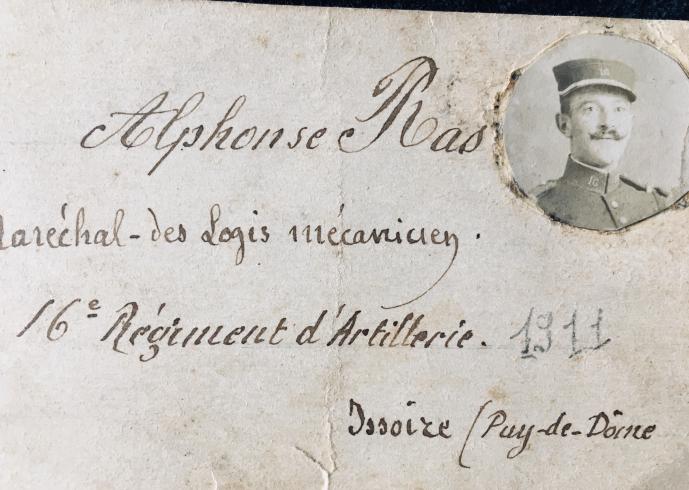 Alphonse Ras
Maréchal-des Logis mécanicien.
16e Régiment d'Artillerie. 1911
Issoire (Puy-de-Dôme
16
16